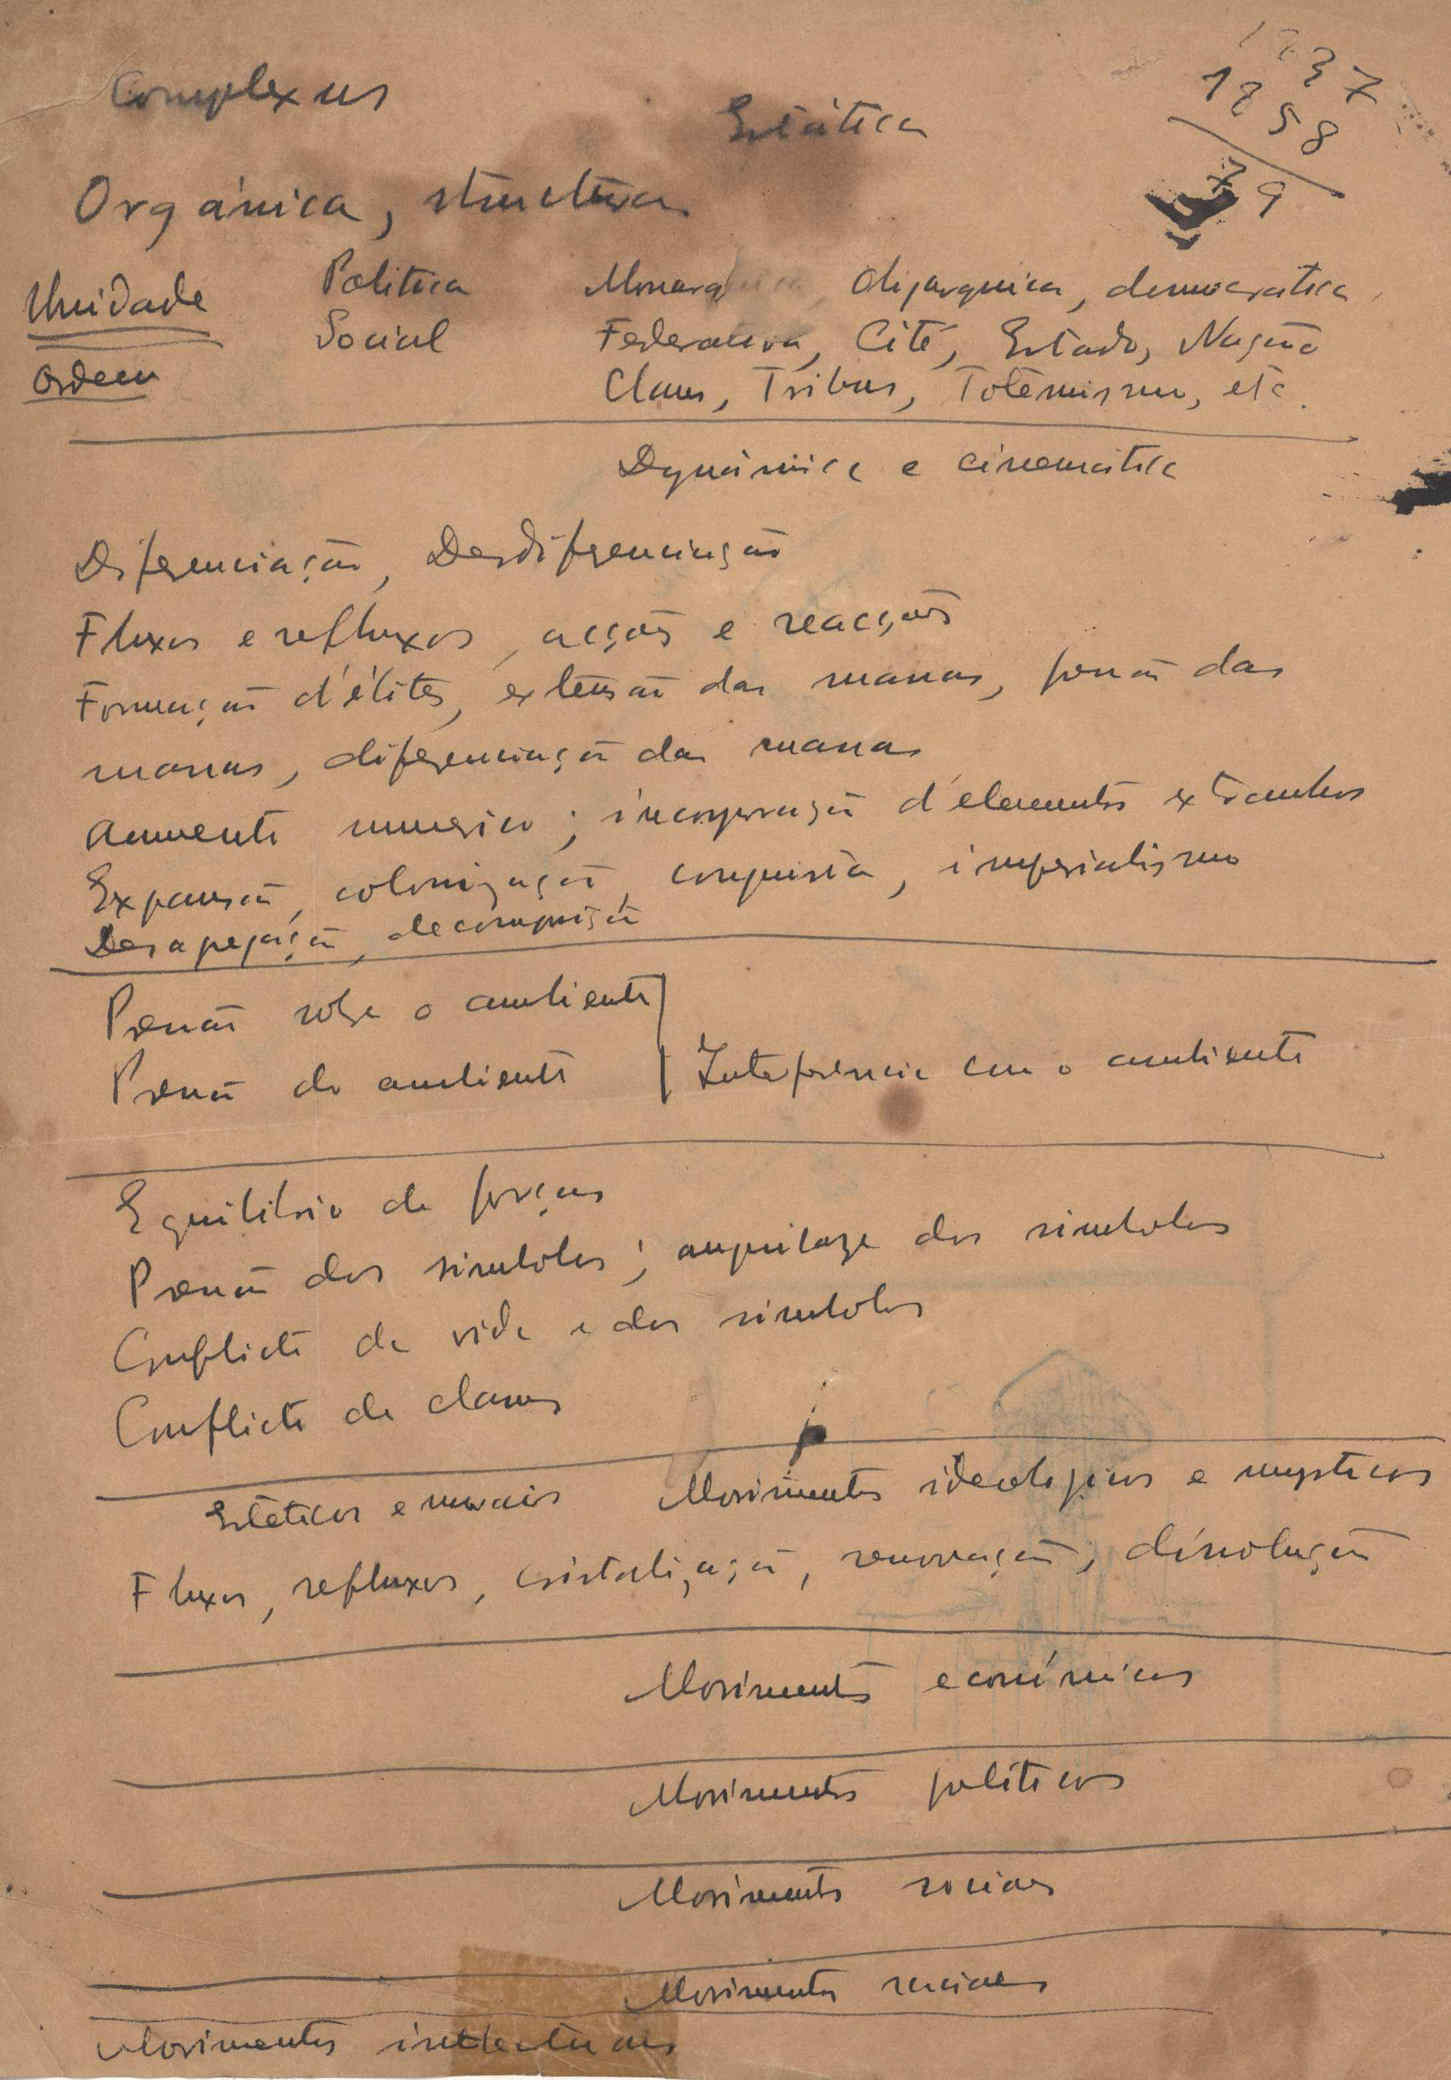 Complexus
Estática
1937
1858
79
Orgánica, structura
Unidade Politica Monarquica, Oligarquica, democratica
Social Federativa, Cité, Estado, Nação
Ordem
Clans, Tribus, Totemismo, etc.
Dynámica e cinemática
Diferenciação, Desdiferenciação
Fluxos e refluxos, acções e reacções
Formação d'élites, extensão das massas, fusão das
massas, diferenciação das massas
Aumento numerico; incorporação d'elementos extranhos
Expansão, colonização, conquista, imperialismo
Desagregação, decomposição
Pressão sobre o ambiente
Pressão do ambiente Interferencia com o ambiente
Equilibrio de forças
Pressão dos simbolos; dos simbolos
Conflicto da vida e dos simbolos
Conflicto de classes
Estéticos e morais Movimentos ideologicos e mysticos
Fluxos, refluxos, cristalização, renovação, dissolução
Movimentos económicos
Movimentos politicos
Movimentos sociaes
Movimentos raciaes
Movimentos intelectuaes